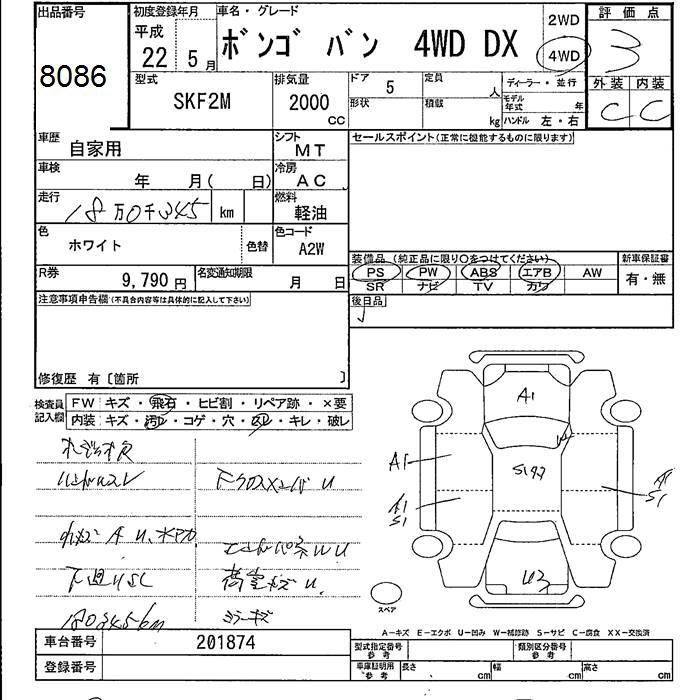 出品番号 8086
初度登録年月 平成 22年 5月
車名・グレード ボンゴ バン 4WD DX
2WD
4WD
評価点 3
外装 内装
C C
型式 SKF2M
排気量 2000 CC
ドア 5
形状
定員 人
積載 kg
ディーラー・並行
モデル年式 年
ハンドル 左・右
車歴 自家用
シフト MT
セールスポイント(正常に機能するものに限ります)
車検 年 月( 日)
冷房 AC
走行 18万0千345 km
燃料 軽油
色 ホワイト
色替
色コード A2W
装備品(純正品に限り○をつけてください)
新車保証書
PS PW ABS エアB AW
SR ナビ TV カワ
有・無
R券 9,790円
名変通知期限 月 日
後日品
注意事項申告欄(不具合内容等は具体的に記入して下さい)
修復歴 有〔箇所 〕
検査員記入欄
FW キズ・飛石・ヒビ割・リペア跡・×要
内装 キズ・汚レ・コゲ・穴・スレ・キレ・破レ
下クロスメンバー U
下廻りSC
荷室キズ U
180345km
ミラーキズ
A1
A1
S1
A1
S1
A1
S1
U2
スペア
A-キズ E-エクボ U-凹み W-補修跡 S-サビ C-腐食 XX-交換済
車台番号 201874
登録番号
型式指定番号 参考
類別区分番号 参考
車庫証明用 参考
長さ cm
幅 cm
高さ cm